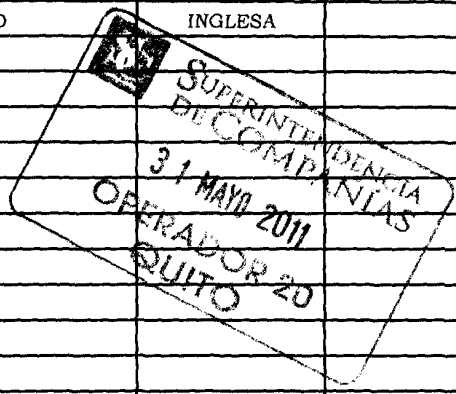 O INGLESA
SUPERINTENDENCIA
DE COMPAÑIAS
31 MAYO 2011
OPERADOR 20
QUITO